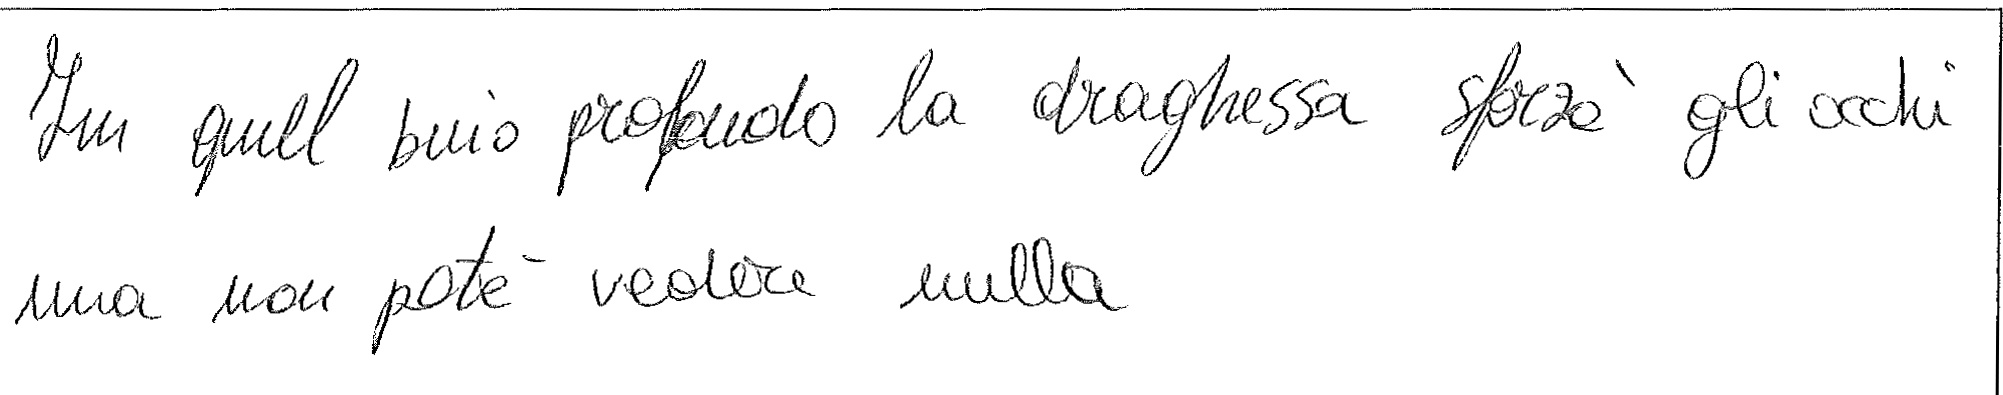 In quell buio profondo la draghessa sforzò gli occhi
ma non poté vedere nulla